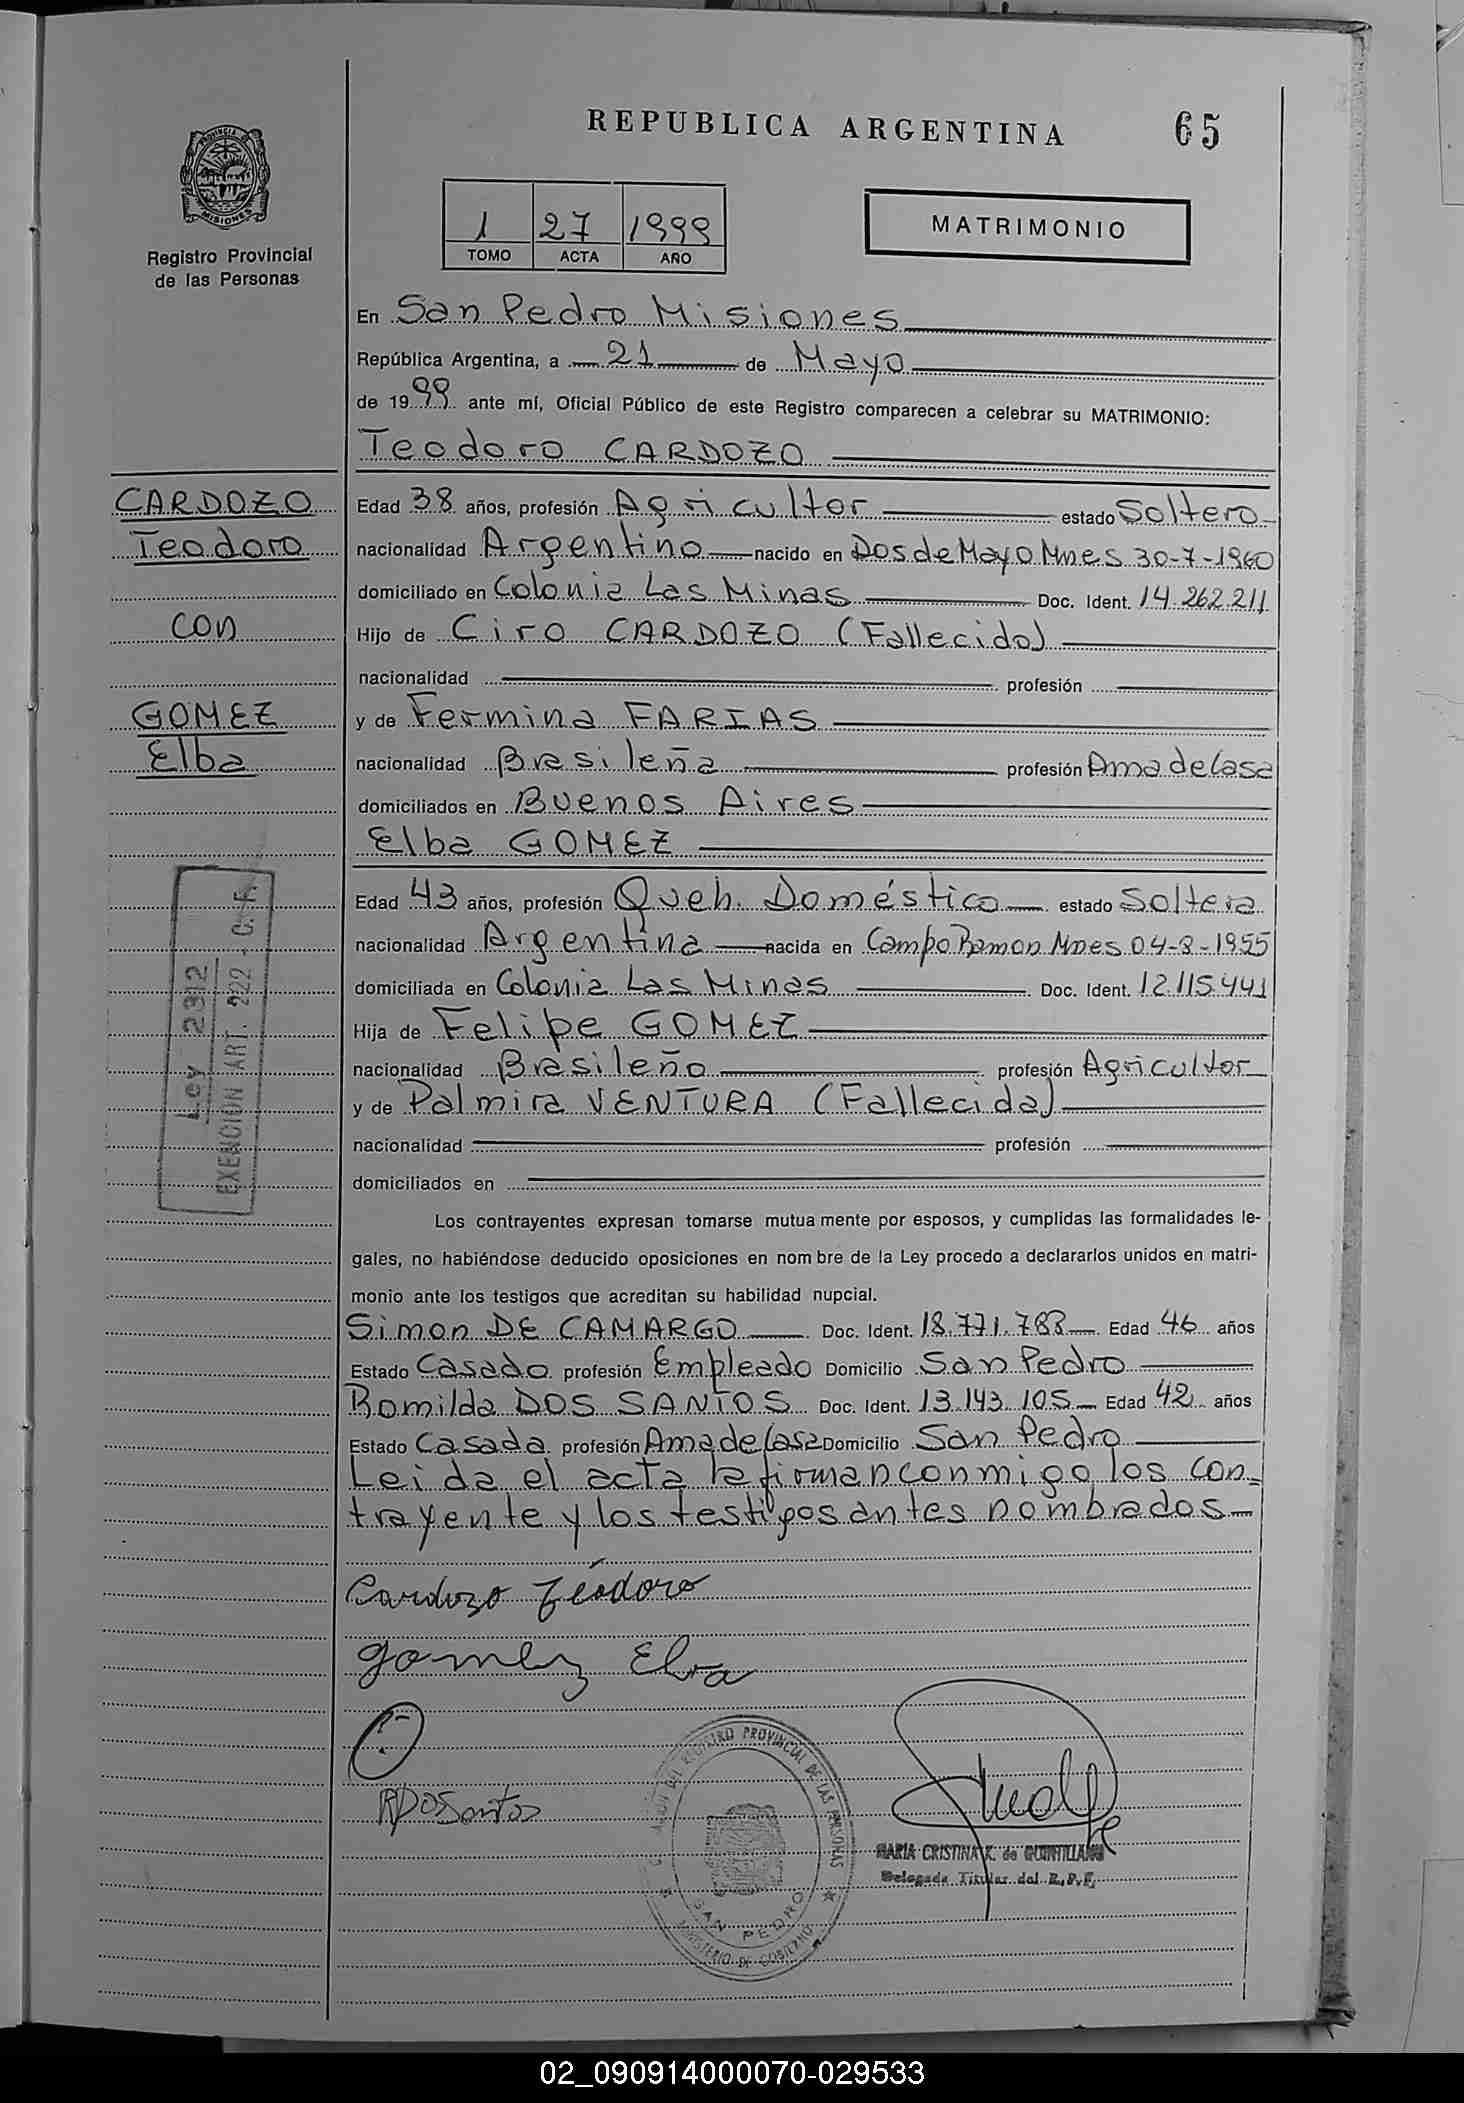 REPUBLICA ARGENTINA
65
PROVINCIA DE MISIONES
Registro Provincial
de las Personas
1 27 1999
TOMO ACTA AÑO
MATRIMONIO
En San Pedro Misiones
República Argentina, a 21 de Mayo
de 1999 ante mí, Oficial Público de este Registro comparecen a celebrar su MATRIMONIO:
Teodoro CARDOZO
CARDOZO
Teodoro
con
GOMEZ
Elba
Edad 38 años, profesión Agricultor estado Soltero
nacionalidad Argentino nacido en Dos de Mayo Mnes 30-7-1960
domiciliado en Colonia Las Minas Doc. Ident. 14.262.211
Hijo de Ciro CARDOZO (Fallecido)
nacionalidad profesión
y de Fermina FARIAS
nacionalidad Brasileña profesión Ama de Casa
domiciliados en Buenos Aires
Elba GOMEZ
Edad 43 años, profesión Queh. Doméstico estado Soltera
nacionalidad Argentina nacida en Campo Ramon Mnes 04-8-1955
domiciliada en Colonia Las Minas Doc. Ident. 12.115.441
Hija de Felipe GOMEZ
nacionalidad Brasileño profesión Agricultor
y de Palmira VENTURA (Fallecida)
nacionalidad profesión
domiciliados en
Ley 2312
EXENCION ART. 222 - C. F.
Los contrayentes expresan tomarse mutua mente por esposos, y cumplidas las formalidades le-
gales, no habiéndose deducido oposiciones en nom bre de la Ley procedo a declararlos unidos en matri-
monio ante los testigos que acreditan su habilidad nupcial.
Simon DE CAMARGO Doc. Ident. 18.771.788 Edad 46 años
Estado Casado profesión Empleado Domicilio San Pedro
Romilda DOS SANTOS Doc. Ident. 13.143.105 Edad 42 años
Estado Casada profesión Ama de Casa Domicilio San Pedro
Leida el acta la firman conmigo los con-
trayente y los testigos antes nombrados
Cardozo Teodoro
Gomez Elba
RDOSantos
REGISTRO PROVINCIAL DE LAS PERSONAS
SAN PEDRO
MINISTERIO DE GOBIERNO
MARIA CRISTINA K. de QUINTILLAN
Delegada Titular del R.P.P.
02_090914000070-029533